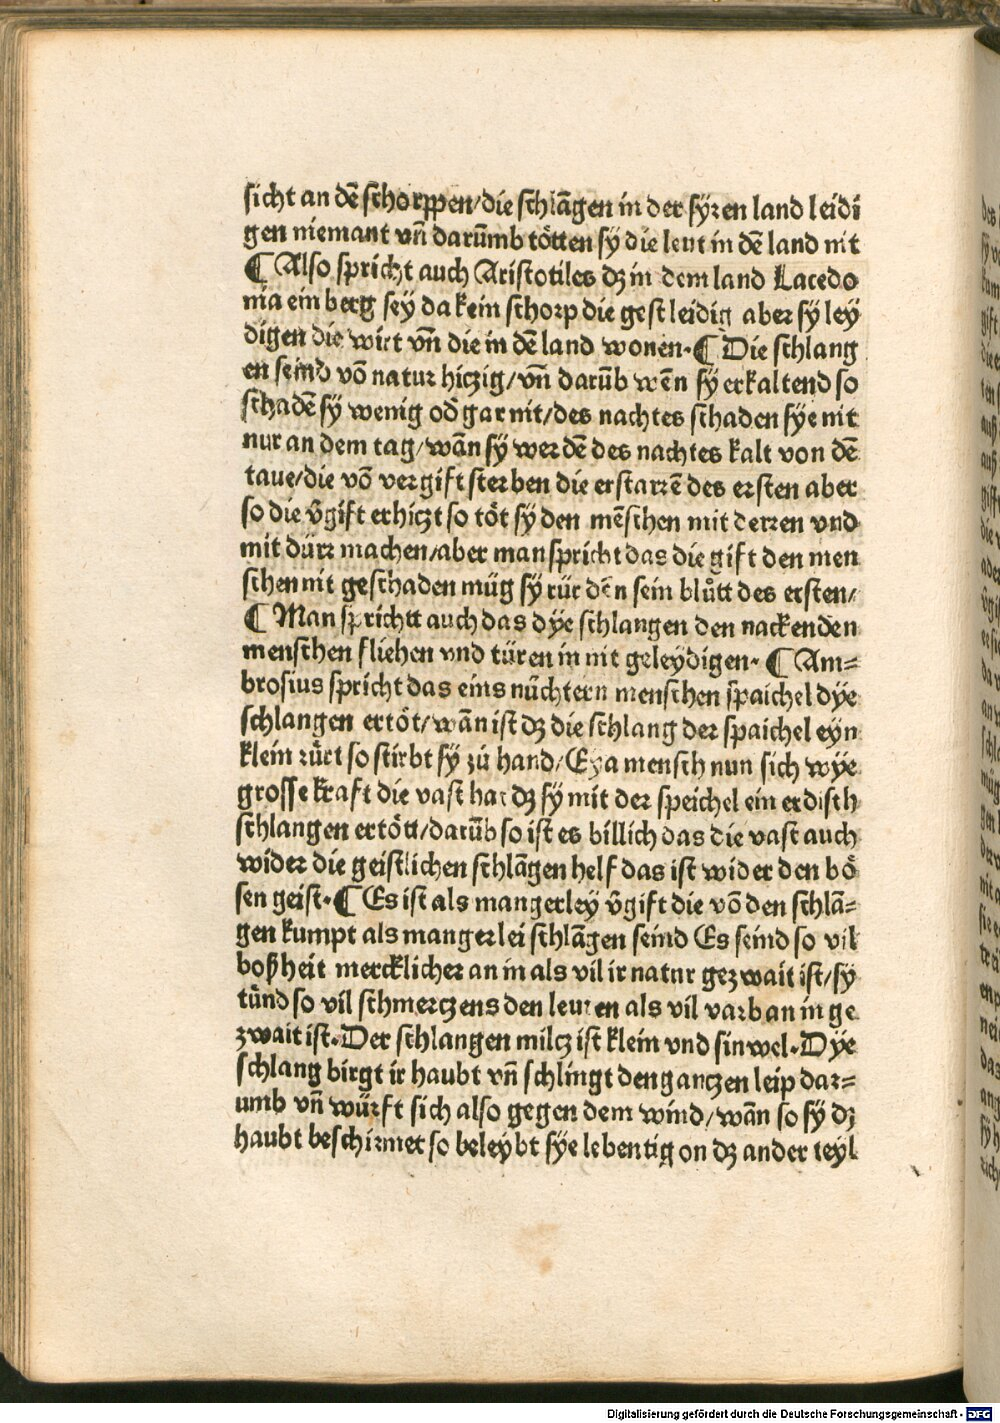 sicht an dē schorppen/die schlāgen in der syren land leidi
gen niemant vñ darūmb tötten sÿ die leut in dē land nit
¶ Also spricht auch Aristotiles dz in dem land Lacedo
nia ein berg seÿ da kein schorp die gest leidig aber sÿ leÿ
digen die wirt vñ die in dē land wonen. ¶ Die schlang
en seind vō natur hiczig/vñ darūb wēn sÿ erkaltend so
schadē sÿ wenig od̄ gar nit/des nachtes schaden sÿe nit
nur an dem tag/wān sÿ werdē des nachtes kalt von dē
taue/die vō vergift sterben die erstarrē des ersten aber
so die v̄gift erhiczt so töt sÿ den mēschen mit derren vnd
mit dürr machen/aber man spricht das die gift den men
schen nit geschaden müg sÿ rür dēn sein blůtt des ersten/
¶ Man sprichtt auch das dÿe schlangen den nackenden
menschen fliehen vnd türen in nit geleÿdigen. ¶ Am=
brosius spricht das eins nüchtern menschen spaichel dÿe
schlangen ertöt/wān ist dz die schlang der spaichel eyn
klein rürt so stirbt sÿ zů hand/Eya mensch nun sich wÿe
grosse kraft die vast hat dz sÿ mit der speichel ein erdisch
schlangen ertött/darūb so ist es billich das die vast auch
wider die geistlichen schlāgen helf das ist wider den bö
sen geist. ¶ Es ist als mangerleÿ v̄gift die vō den schlā=
gen kumpt als mangerlei schlāgen seind Es seind so vil
boßheit mercklicher an in als vil ir natur gezwait ist/sÿ
tůnd so vil schmerczens den leuten als vil varb an in ge
zwait ist. Der schlangen milcz ist klein vnd sinwel. Dÿe
schlang birgt ir haubt vñ schlingt den ganczen leip dar=
umb vñ würft sich also gegen dem wind/wān so sÿ dz
haubt beschirmet so beleÿbt sÿe lebentig on dz ander teÿl
Digitalisierung gefördert durch die Deutsche Forschungsgemeinschaft - DFG